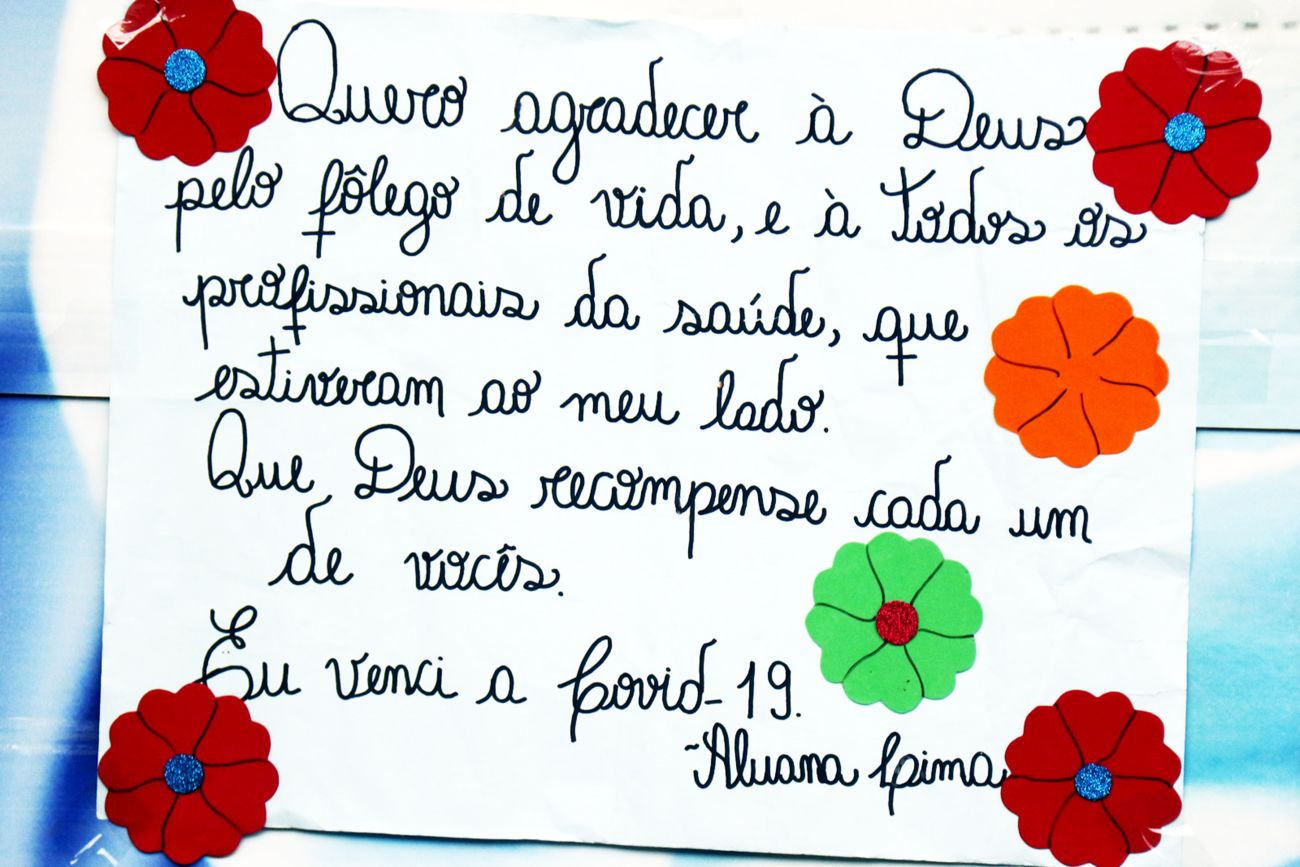 Quero agradecer à Deus
pelo fôlego de vida, e à todos os
profissionais da saúde, que
estiveram ao meu lado.
Que Deus recompense cada um
de vocês.
Eu venci a Covid-19.
~Aluana